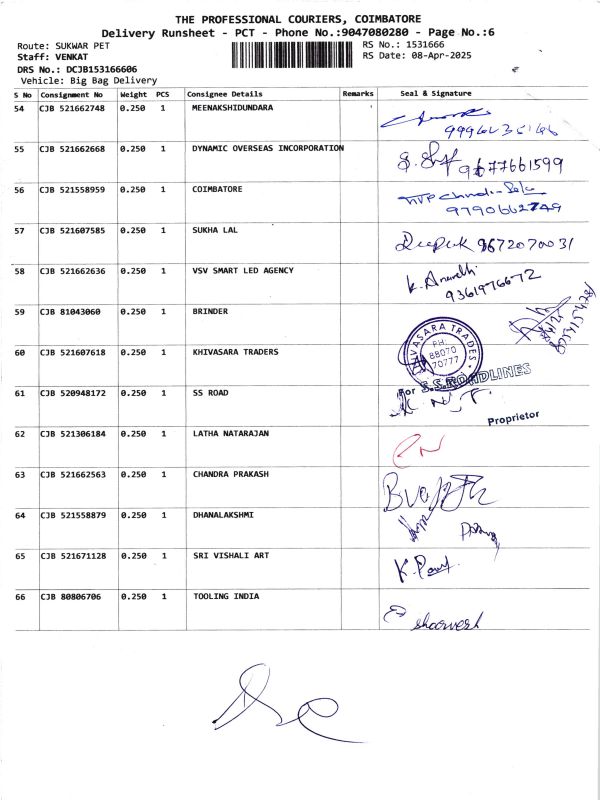 THE PROFESSIONAL COURIERS, COIMBATORE
Delivery Runsheet - PCT - Phone No.:9047080280 - Page No.:6
Route: SUKWAR PET
RS No.: 1531666
Staff: VENKAT
RS Date: 08-Apr-2025
DRS No.: DCJB153166606
Vehicle: Big Bag Delivery
S No Consignment No Weight PCS Consignee Details Remarks Seal & Signature
54 CJB 521662748 0.250 1 MEENAKSHIDUNDARA
55 CJB 521662668 0.250 1 DYNAMIC OVERSEAS INCORPORATION 9677661599
56 CJB 521558959 0.250 1 COIMBATORE
9790662749
57 CJB 521607585 0.250 1 SUKHA LAL Deepak 9672070031
58 CJB 521662636 0.250 1 VSV SMART LED AGENCY
9361976672
59 CJB 81043060 0.250 1 BRINDER
60 CJB 521607618 0.250 1 KHIVASARA TRADERS
KHIVASARA TRADES
PH:
88070
70777
61 CJB 520948172 0.250 1 SS ROAD
For S.S.ROADLINES
Proprietor
62 CJB 521306184 0.250 1 LATHA NATARAJAN
63 CJB 521662563 0.250 1 CHANDRA PRAKASH
64 CJB 521558879 0.250 1 DHANALAKSHMI
65 CJB 521671128 0.250 1 SRI VISHALI ART
66 CJB 80806706 0.250 1 TOOLING INDIA